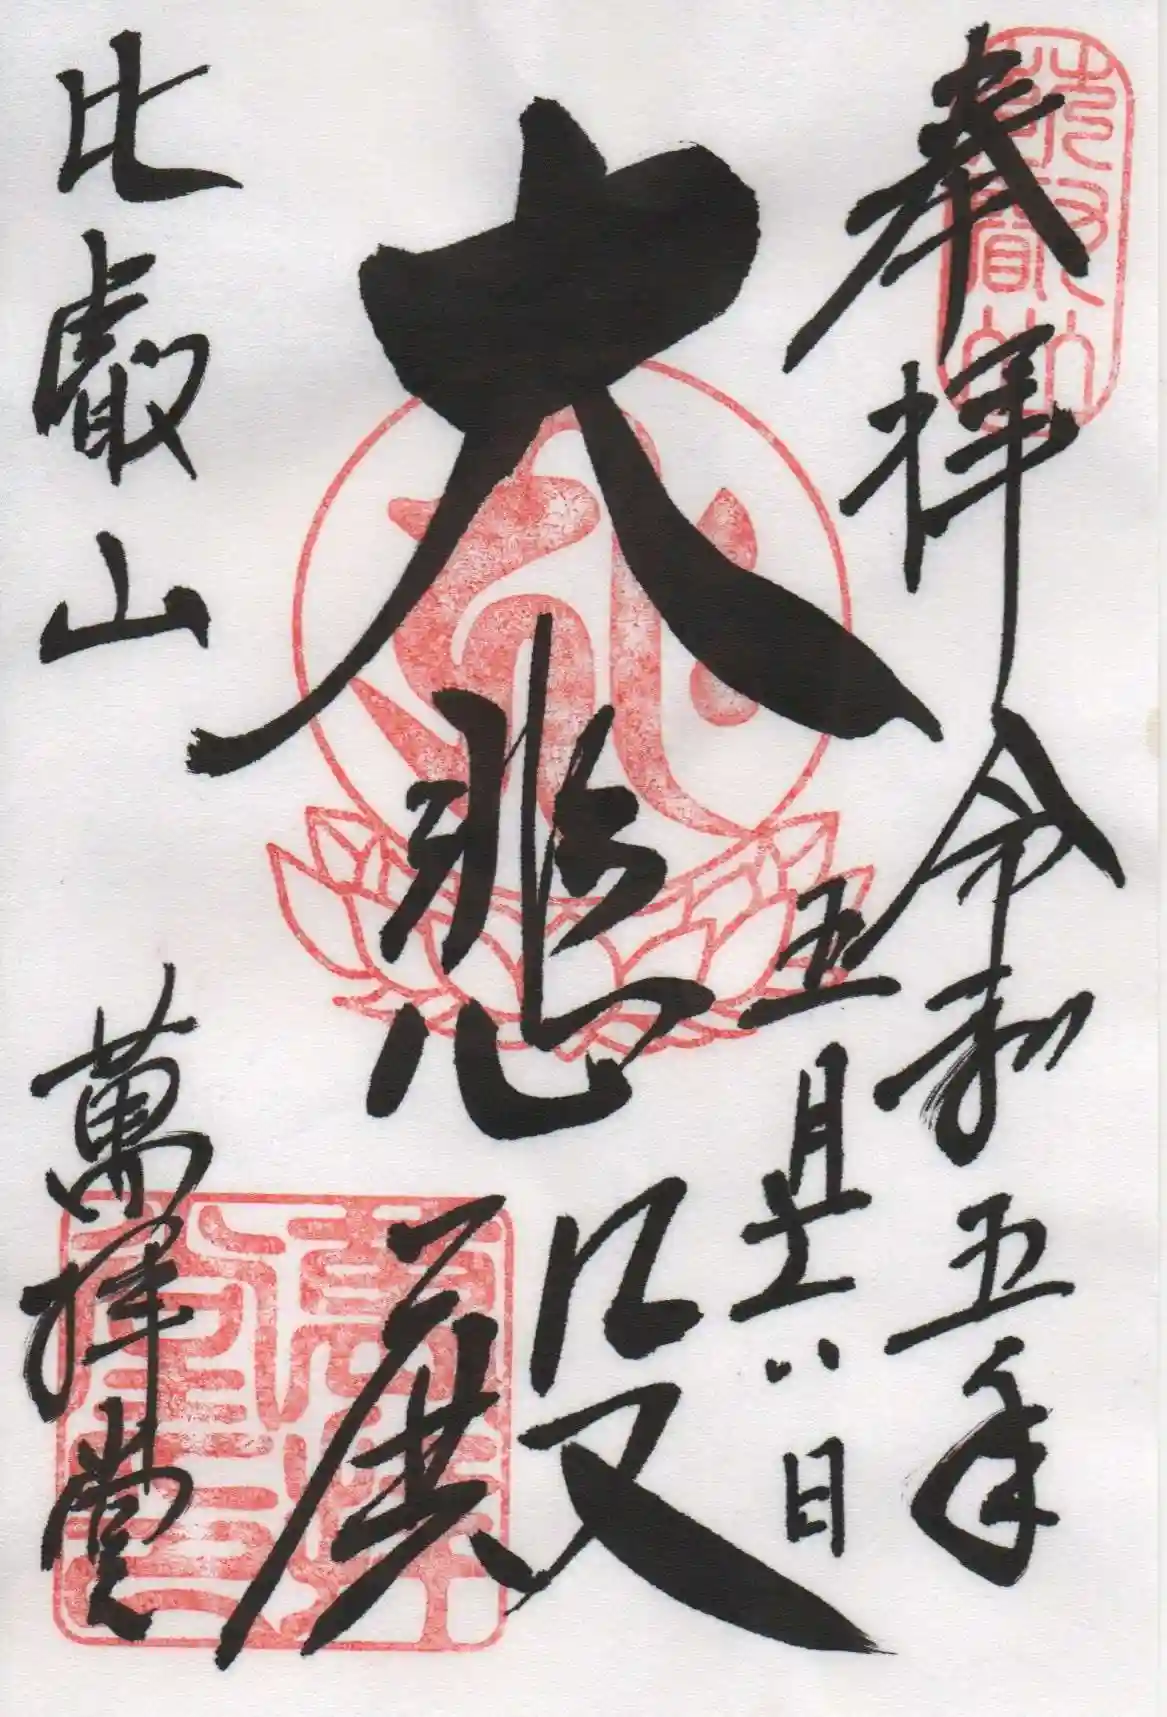 奉拝
令和五年
五月十八日
大悲殿
比叡山
萬拝堂